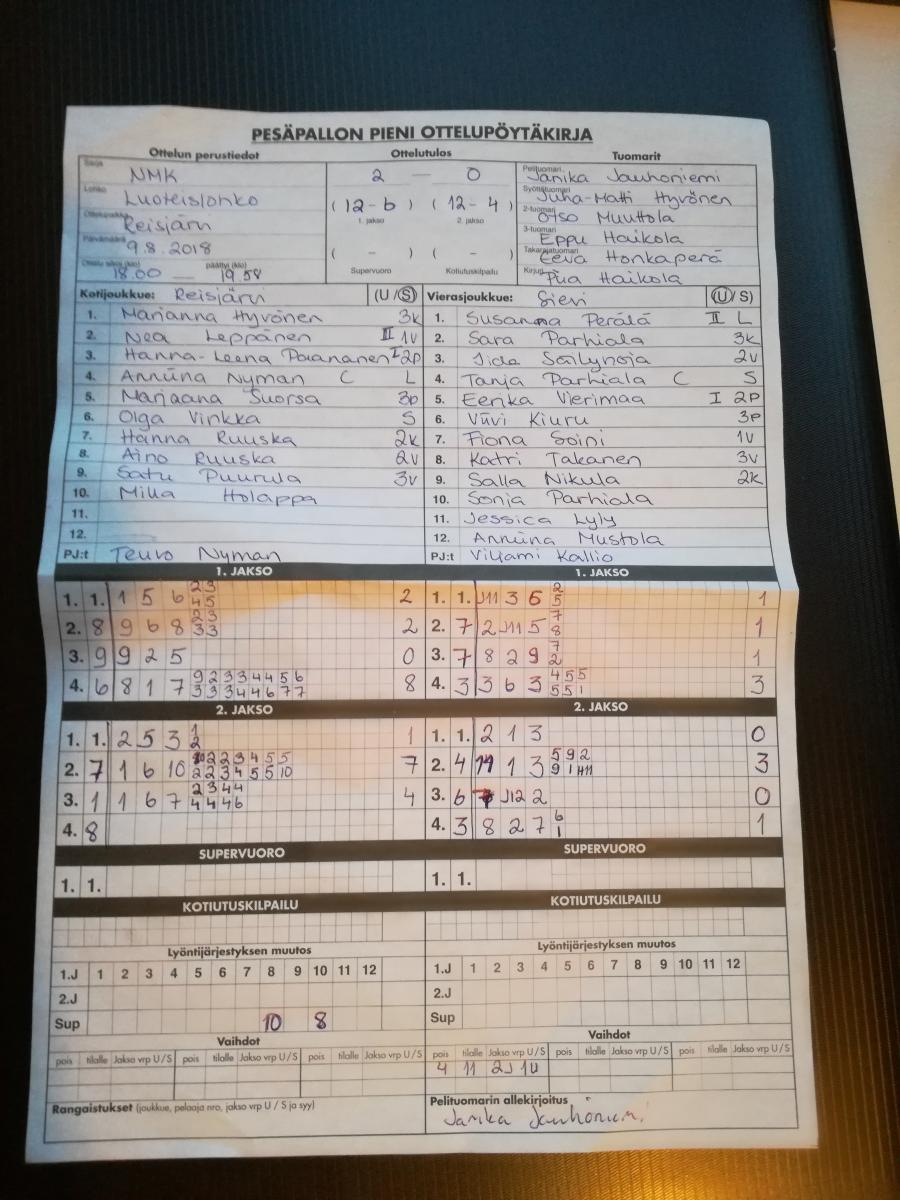 PESÄPALLON PIENI OTTELUPÖYTÄKIRJA
Ottelun perustiedot Ottelutulos Tuomarit
Sarja NMK 2 — 0 Pelituomari Janika Jauhoniemi
Lohko Luoteislohko (12-6) (12-4) Syöttötuomari Juha-Matti Hyvönen
1. jakso 2. jakso 2-tuomari Otso Muuttola
Ottelupaikka Reisjärvi 3-tuomari Eppu Haikola
Päivämäärä 9.8.2018 ( - ) ( - ) Takarajatuomari Eeva Honkaperä
Ottelu alkoi (klo) 18.00 — päättyi (klo) 19.58 Supervuoro Kotiutuskilpailu Kirjuri Piia Haikola
Kotijoukkue: Reisjärvi (U/S) Vierasjoukkue: Sievi (U/S)
1. Marianna Hyvönen 3k 1. Susanna Perälä II L
2. Nea Leppänen II 1V 2. Sara Parhiala 3k
3. Hanna-Leena Paananen I 2p 3. Iida Säilynoja 2v
4. Anniina Nyman C L 4. Tanja Parhiala C S
5. Marjaana Suorsa 3p 5. Eerika Vierimaa I 2P
6. Olga Vinkka S 6. Viivi Kiuru 3p
7. Hanna Ruuska 2k 7. Fiona Soini 1v
8. Aino Ruuska 2v 8. Katri Takanen 3v
9. Satu Puurula 3v 9. Salla Nikula 2k
10. Milla Holappa 10. Sonja Parhiala
11. 11. Jessica Lyly
12. 12. Anniina Mustola
PJ:t Teuvo Nyman PJ:t Viljami Kallio
1. JAKSO 1. JAKSO
1. 1. 1 5 6 2 3 4 5 2 1. 1. J11 3 6 2 5 1
2. 8 9 6 8 2 3 3 3 2 2. 7 2 J11 5 7 8 1
3. 9 9 2 5 0 3. 7 8 2 9 7 2 1
4. 6 8 1 7 9 2 3 3 4 4 5 6 3 3 3 4 4 6 7 7 8 4. 3 3 6 3 4 5 5 5 5 1 3
2. JAKSO 2. JAKSO
1. 1. 2 5 3 1 2 1 1. 1. 2 1 3 0
2. 7 1 6 10 2 2 3 4 5 5 2 2 3 4 5 5 10 7 2. 4 1 3 5 9 2 9 1 3
3. 1 1 6 7 2 3 4 4 4 4 4 6 4 3. 6 J12 2 0
4. 8 4. 3 8 2 7 6 1 1
SUPERVUORO SUPERVUORO
1. 1. 1. 1.
KOTIUTUSKILPAILU KOTIUTUSKILPAILU
Lyöntijärjestyksen muutos Lyöntijärjestyksen muutos
1.J 1 2 3 4 5 6 7 8 9 10 11 12 1.J 1 2 3 4 5 6 7 8 9 10 11 12
2.J 2.J
Sup 10 8 Sup
Vaihdot Vaihdot
pois tilalle Jakso vrp U/S pois tilalle Jakso vrp U/S pois tilalle Jakso vrp U/S pois tilalle Jakso vrp U/S pois tilalle Jakso vrp U/S pois tilalle Jakso vrp U/S
4 11 2J 1U
Rangaistukset (joukkue, pelaaja nro, jakso vrp U / S ja syy) Pelituomarin allekirjoitus
Janika Jauhoniemi